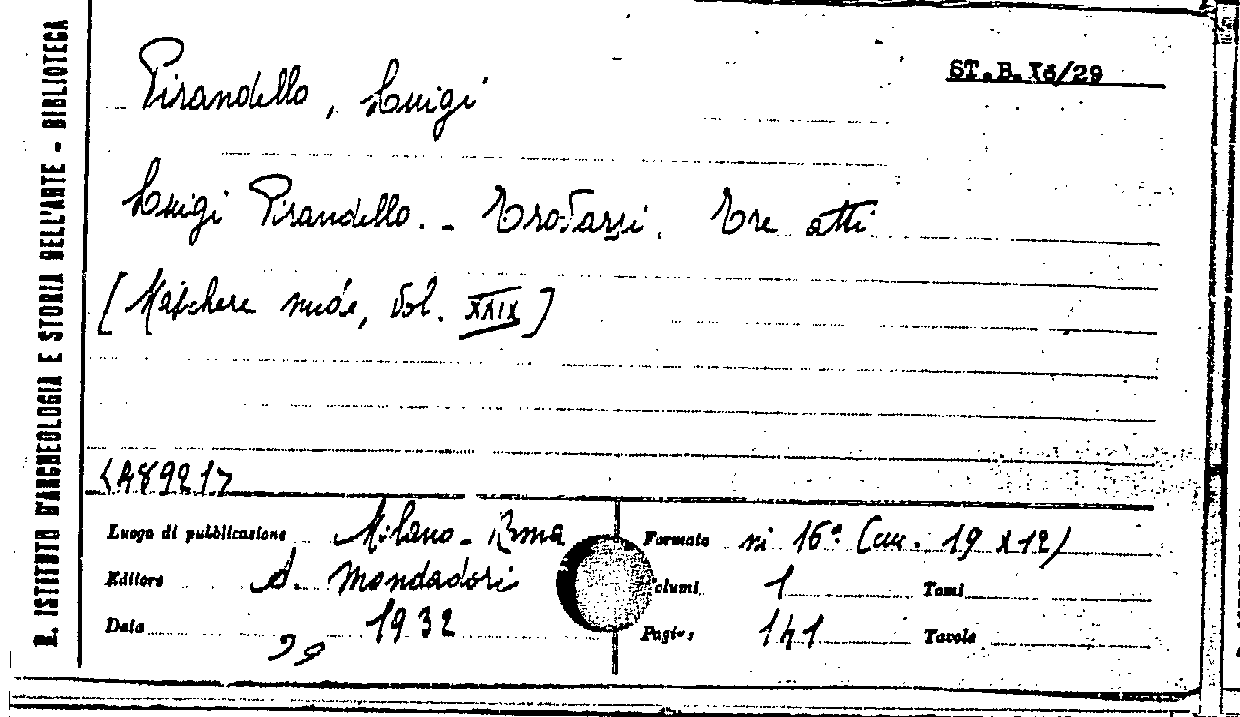 R. ISTITUTO D'ARCHEOLOGIA E STORIA DELL'ARTE - BIBLIOTECA
ST.B.X6/29
Pirandello, Luigi
Luigi Pirandello. - Trovarsi. Tre atti
[Maschere nude, Vol. XXIX]
<48921>
Luogo di pubblicazione Milano - Roma
Editore A. Mondadori
Data 1932
Formato in 16° (cm. 19 x 12)
Volumi 1 Tomi
Pagine 141 Tavole